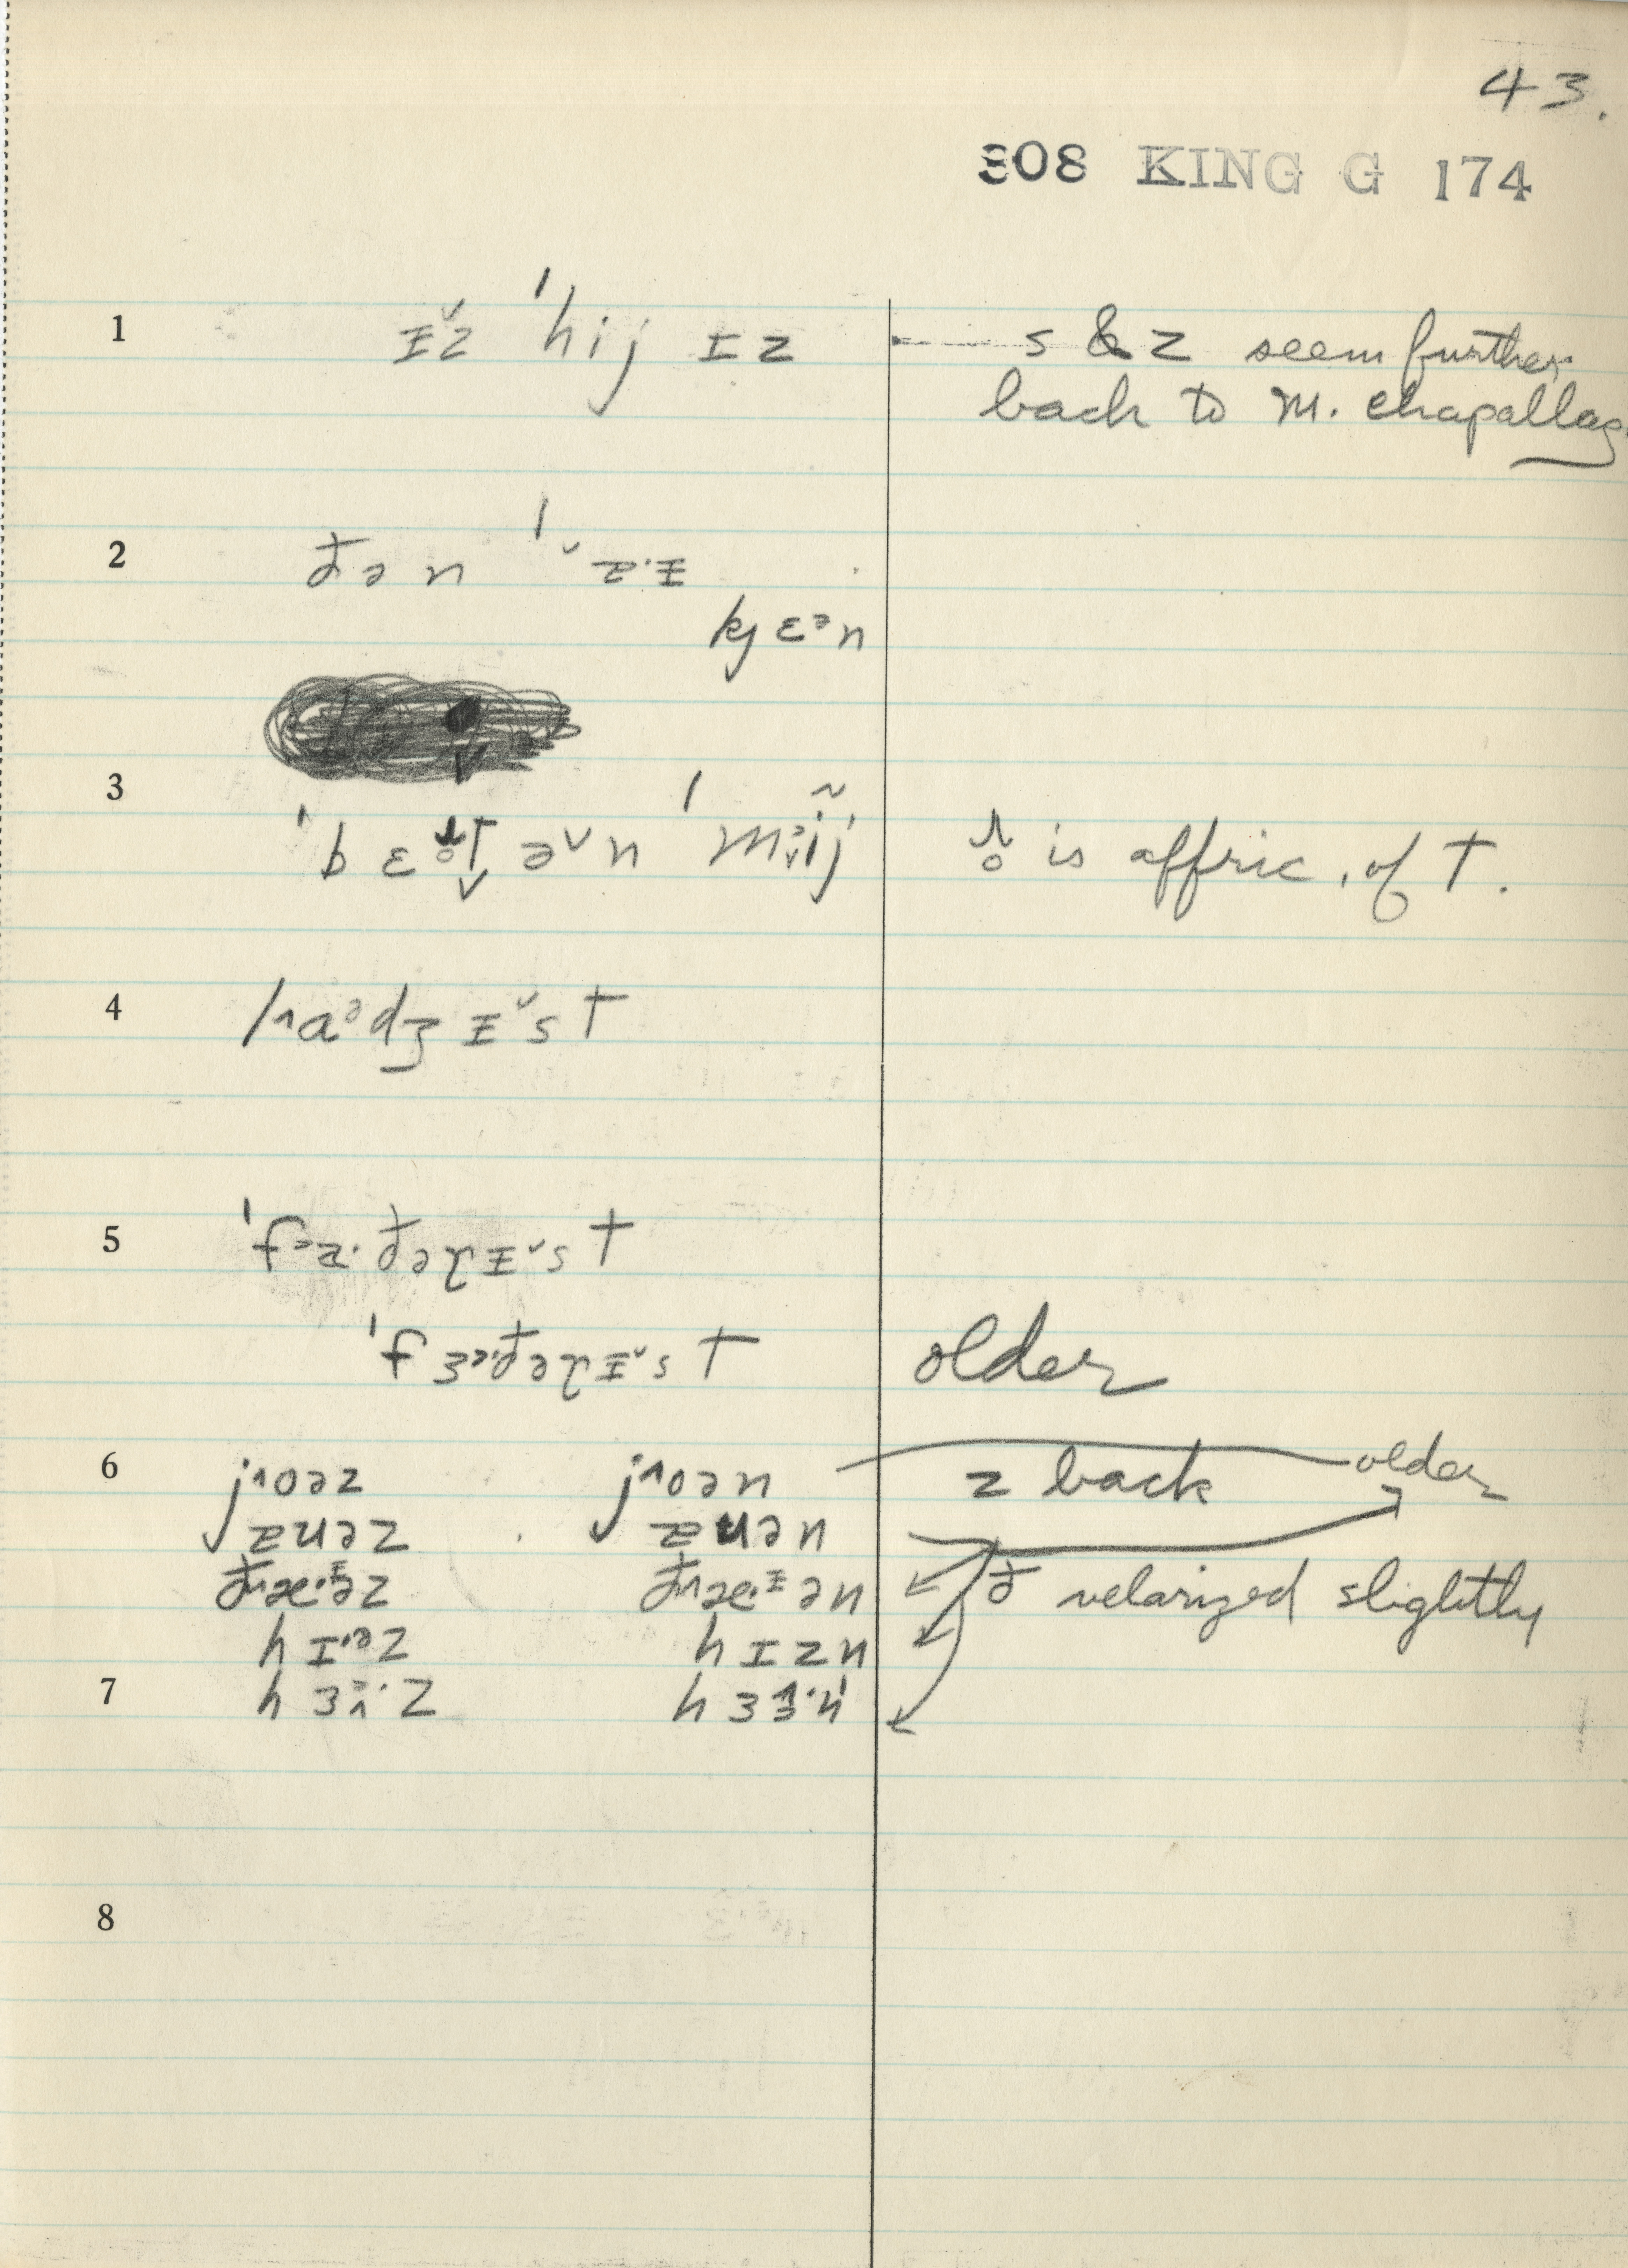 43.
308 KING G 174
1 ɪ̵̆z ˈhij ɪz s & z seem further
back to M. Chapallaz
2 ðən ˈɐ·ɪ̵
kjɛᵊn
3 ˈbɛɹ̥t̬əˇn ˈmĩj ɹ̥ is affric. of t.
4 lɑᵊdʒɪ̵ˇst
5 ˈfɐ·ðəɾɪ̵ˇst
ˈfɜᵊ·ðəɾɪ̵ˇst older
6 joəz joən z back older
ɐuəz ɐuən
ðæ·ɪ̵əz ðæ·ɪ̵ən ð velarized slightly
hɪ·ᵊz hɪzn
7 hɜ·z hɜ·n
8